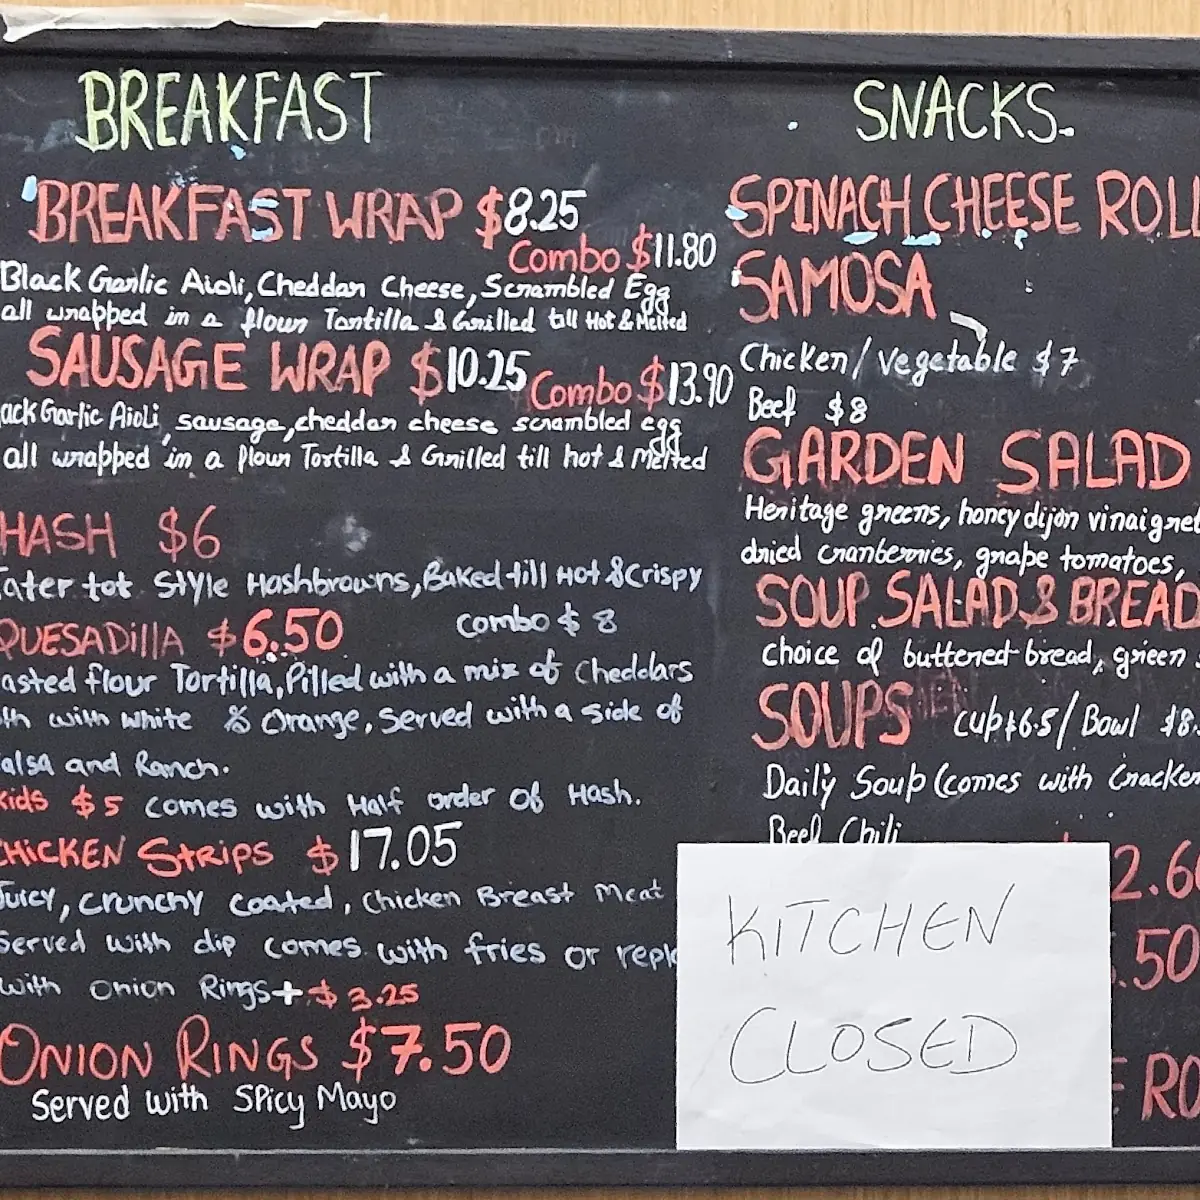 BREAKFAST
BREAKFAST WRAP $8.25
Combo $11.80
Black Garlic Aioli, Cheddar Cheese, Scrambled Egg
all wrapped in a flour Tortilla & Grilled till Hot & Melted
SAUSAGE WRAP $10.25 Combo $13.90
ack Garlic Aioli, sausage, cheddar cheese scrambled egg
all wrapped in a flour Tortilla & Grilled till hot & Melted
HASH $6
Tater tot Style Hashbrowns, Baked till Hot & Crispy
QUESADilla $6.50 combo $ 8
asted flour Tortilla, Filled with a mix of Cheddars
th with white & Orange, Served with a side of
alsa and Ranch.
Kids $5 comes with Half order of Hash.
CHICKEN Strips $17.05
Juicy, crunchy coated, Chicken Breast Meat
Served with dip comes with fries or repl
with Onion Rings + $3.25
ONION RINGS $7.50
Served with Spicy Mayo
SNACKS.
SPINACH CHEESE ROLL
SAMOSA
Chicken/Vegetable $7
Beef $8
GARDEN SALAD
Heritage greens, honey dijon vinaigret
dried cranberries, grape tomatoes,
SOUP SALAD & BREAD
choice of buttered bread, green
SOUPS cup $6.5/ Bowl $8.
Daily Soup (comes with Cracker
Beef Chili
2.6
.50
RO
KITCHEN
CLOSED